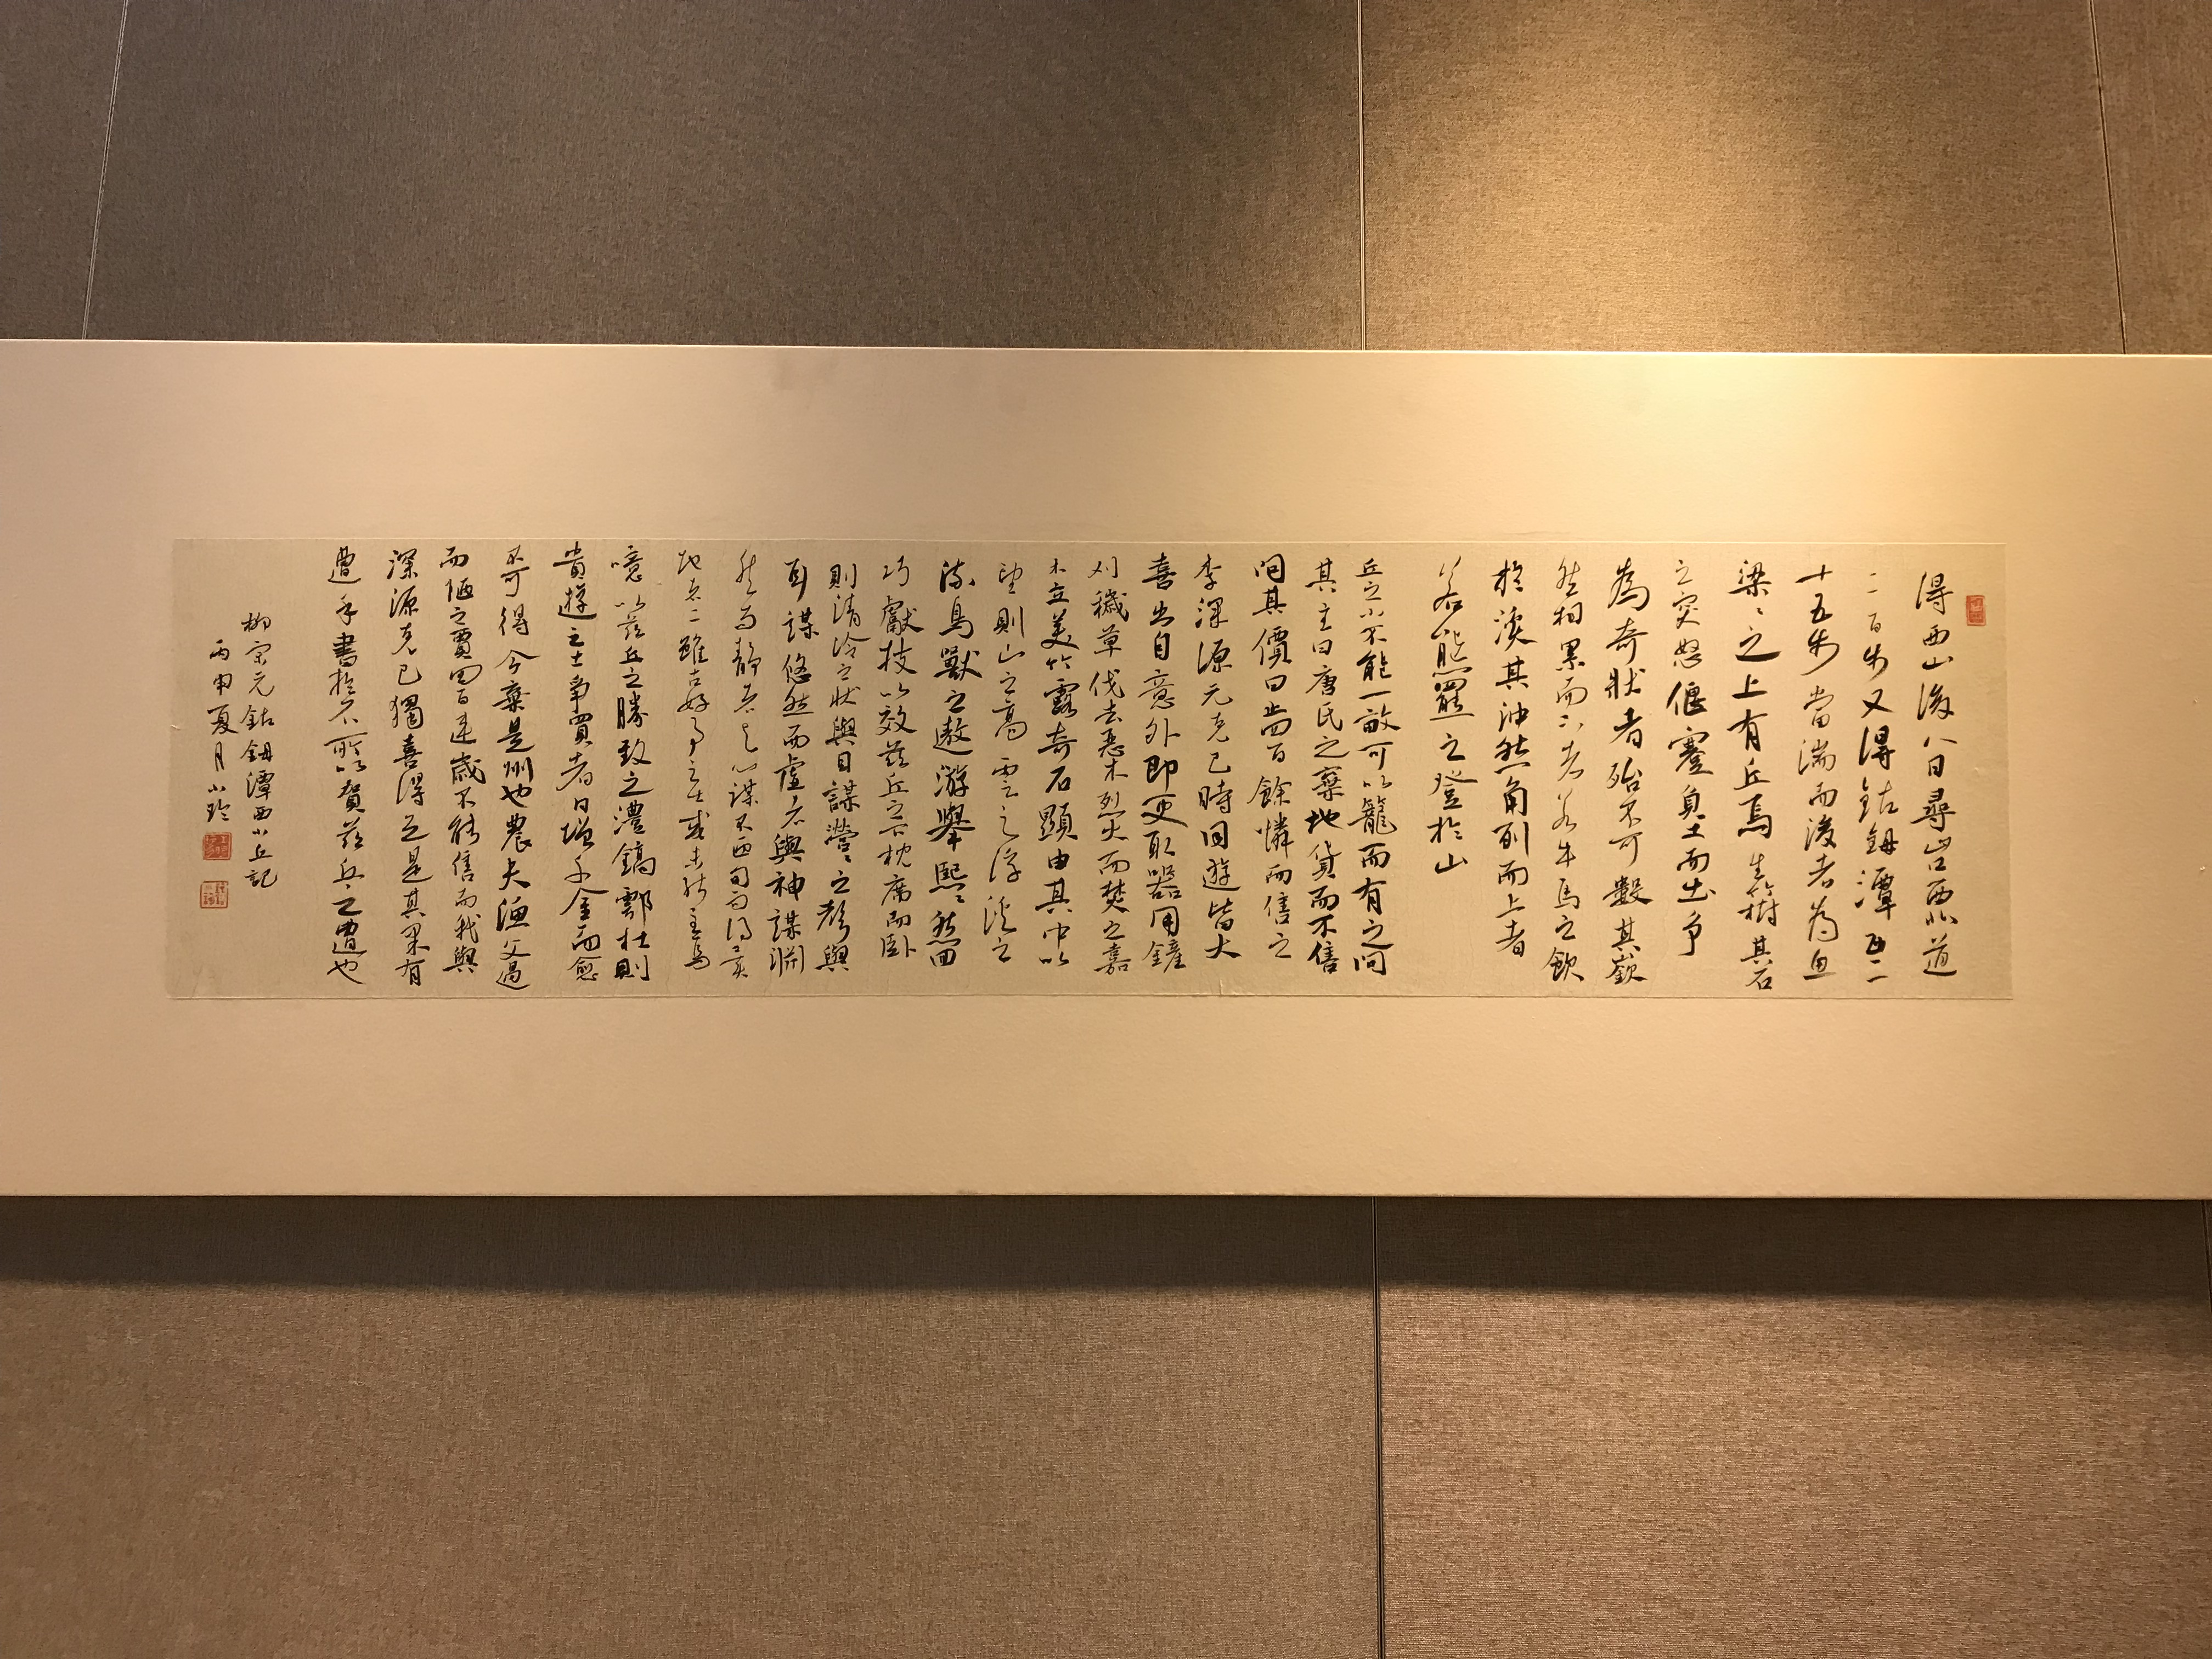 得西山後八日尋山口西北道
二百步又得鈷鉧潭西二
十五步當湍而浚者為魚
梁〻之上有丘焉生竹樹其石
之突怒偃蹇負土而出爭
為奇狀者殆不可數其嶔
然相累而下者若牛馬之飲
於溪其沖然角列而上者
若熊羆之登於山
丘之小不能一畝可以籠而有之問
其主曰唐氏之棄地貨而不售
問其價曰止四百餘憐而售之
李深源元克己時同遊皆大
喜出自意外即更取器用鏟
刈穢草伐去惡木烈火而焚之嘉
木立美竹露奇石顯由其中以
望則山之高雲之浮溪之
流鳥獸之遨游舉熙〻然迴
巧獻技以效茲丘之下枕席而臥
則清泠之狀與目謀瀯〻之聲與
耳謀悠然而虛者與神謀淵
然而靜者與心謀不匝旬而得異
地者二雖古好事之士或未能至焉
噫以茲丘之勝致之灃鎬鄠杜則
貴遊之士爭買者日增千金而愈
不可得今棄是州也農夫漁父過
而陋之賈四百連歲不能售而我與
深源克己獨喜得之是其果有
遭乎書於石所以賀茲丘之遭也
柳宗元鈷鉧潭西小丘記
丙申夏月小玲